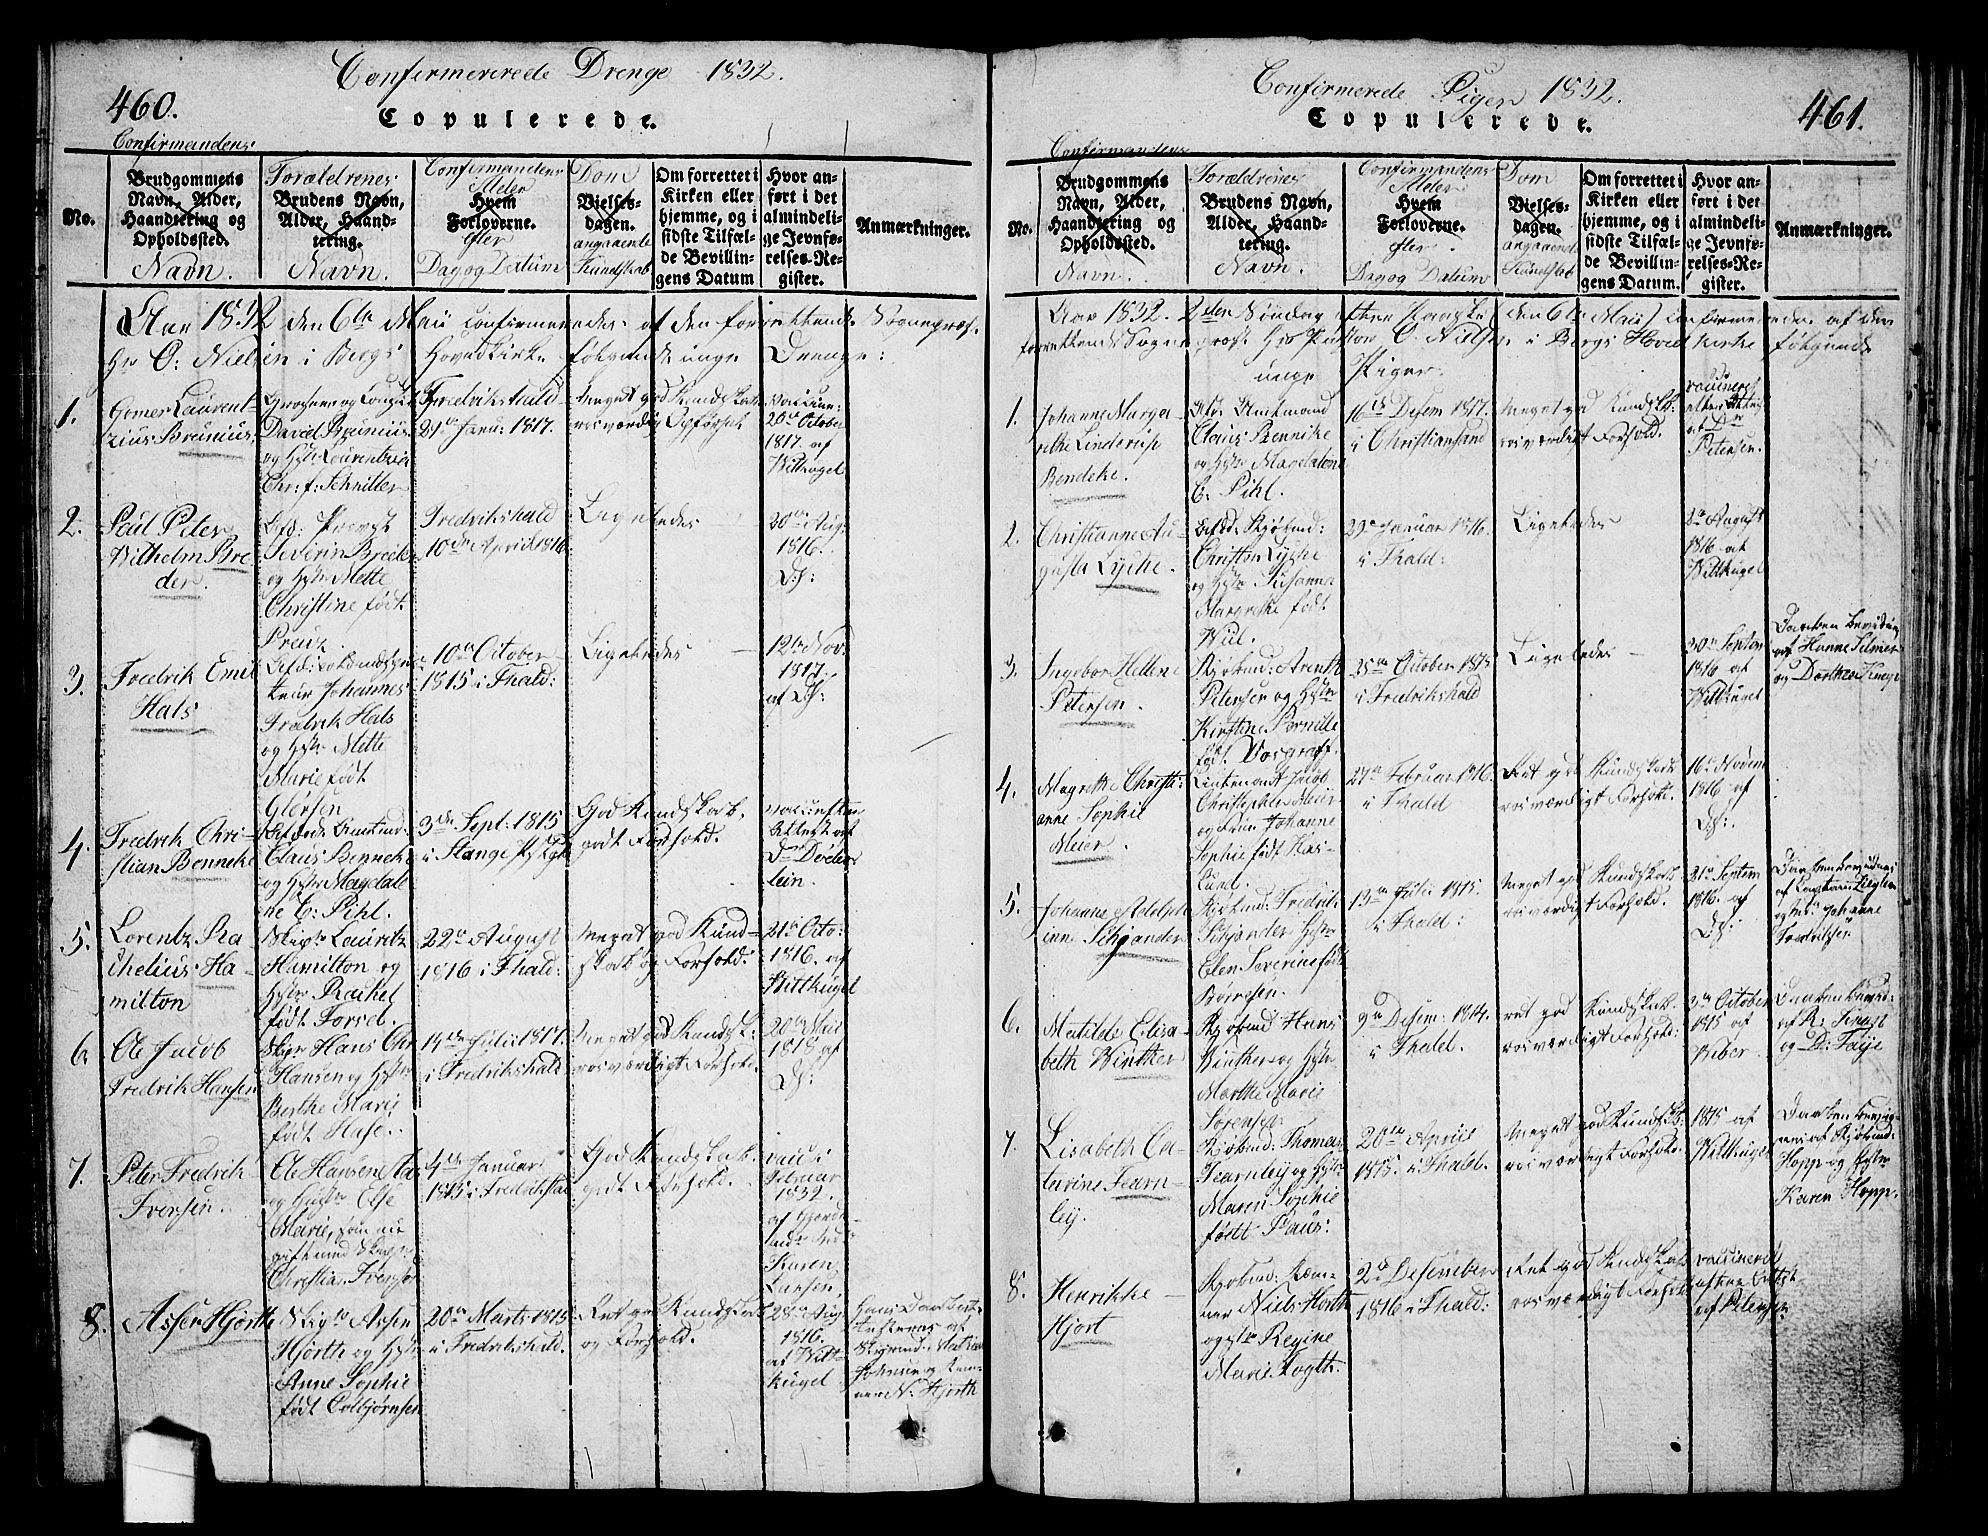 Confirmererede Drenge 1832.
460.
Copulerede.
Confirmandens
No.
Brudgommens
Navn, Alder,
Haandtering og
Opholdssted.
Navn.
Forældrenes
Brudens Navn,
Alder, Haand-
tering.
Navn.
Confirmandens
Alder
Hvem
Forloverne.
efter
Dag og Datum
Dom
Vielses-
dagen.
angaaende
Kundskab
Om forrettet i
Kirken eller
hjemme, og i
sidste Tilfæl-
de Bevillin-
gens Datum
Hvor an-
ført i det
almindeli-
ge Jevnfø-
relses-Re-
gister.
Anmærkninger.
Aar 1832 den 6te Maii confirmeredes af den forrettende Sognepræst
Hr O: Nielsen i Bergs Hovedkirke følgende unge Drenge:
1.
Gomer Laurent-
zius Brunius.
David Brunius
og Hstr Laurentzia
Chr: f: Schnitler
Fredrikshald
21de Janu: 1817.
meget god Kundskab
rosværdig Opførsel
20de October
1817 af
Wittkugel
2.
Poul Peter
Wilhelm Bre-
der.
Afd: Provst
Severin Breder
og Hstr Mette
Christine født
Preuz.
Fredrikshald
10de April 1816
Ligeledes
20de Aug:
1816.
Ds:
3.
Fredrik Emil
Hals
Johannes
Fredrik Hals
og Hstr Mette
Marie født
Glersen
10de October
1815 i Fhald:
Ligeledes
12te Nov:
1817
af Ds:
4.
Fredrik Chri-
stian Benneke
Claus Benneke
og Hstr Magdale
ne C: Pihl.
3de Sept: 1815
i Stange
God Kundskab.
godt Forhold.
Attest af
Dr
lein.
5.
Lorentz Ra
chelius Ha-
milton
Skipr Lauritz
Hamilton og
Hstr Rachel
født Forsel.
22de August
1816 i Fhald:
meget god Kund-
skab og Forhold.
21de Octo:
1816. af
Wittkugel
6.
Ole Jacob
Fredrik Hansen
Skipr Hans Chr
Hansen og Hstr
Berthe Marie
født Hase.
14de Julii 1817.
i Fredrikshald
meget god Kundsk:
rosværdigt Forhold.
20de Maii
1818 af
Ds:
7.
Peter Fredrik
Iversen.
Ole Hansen
og Hustr Else
Marie, som nu
gift med Skipr
Christian Iversen
4de Januar
1815 i Fredrikshald
God Kundskab.
godt Forhold.
vacc i
Februar
1832.
af
Karen
Larsen.
8.
Asser Hjorth
Skipr Asser
Hjorth og Hstr
Anne Sophie
født Colbjørnsen
20de Marts 1815
i Fredrikshald.
Ret god Kundskab
og Forhold.
28de Aug
1816.
af Witt-
kugel
N: Hjorth
Confirmerede Piger 1832.
461.
Copulerede.
Confirmandens
No.
Brudgommens
Navn, Alder,
Haandtering og
Opholdssted.
Navn.
Forældrenes
Brudens Navn,
Alder, Haand-
tering.
Navn.
Confirmandens
Alder
Hvem
Forloverne.
efter
Dag og Datum
Dom
Vielses-
dagen.
angaaende
Kundskab
Om forrettet i
Kirken eller
hjemme, og i
sidste Tilfæl-
de Bevillin-
gens Datum.
Hvor an-
ført i det
almindeli-
ge Jevnfø-
relses-Re-
gister.
Anmærkninger.
Aar 1832. 2den Søndag efter Paaske (den 6te Maii) confirmerede af den
forrettende Sognepræst Hr Pastor O. Nielsen i Bergs Hovedkirke følgende
unge Piger:
1.
Johanne Marga-
rethe Linderup
Bendeke.
Claus Bennike
og Hstr Magdalene
C: Pihl.
16de Desem 1817.
i Christiansand
meget god Kundsk:
rosværdigt Forhold.
vaccineret
af Dr
Petersen.
2.
Christianne Au-
gusta Lycke.
Afd: Kjøbmd:
Christian Lycke
og Hstr Susanna
Margrethe født
Wiil.
29de Januar 1816.
i Fhald:
Ligeledes
August
1816 af
Wittkugel
3.
Ingebor Hellene
Petersen.
Kjøbmd: Arent
Petersen og Hstr
Kirstine Pernille
født Vosgraff.
25de October 1815
i Fredrikshald
Ligeledes
30te Septem
1816 af
Wittkugel
af Hanne Silmer
og Dorthea
4.
Magrethe Christi:
anne Sophie
Meier.
Lieutenant Jacob
Christopher Meier
og Frue Johanne
Sophie født Has-
lund.
27de Februar 1816.
i Fhald
Ret god Kundskab
rosværdigt Forhold.
16de Novem
1816 af
Ds:
5.
Johanne Adolph
ine Schjander
Kjøbmd: Fredrik
Schjander Hstr
Elen Severine født
Børresen.
13de Julii 1815.
i Fhald:
meget god Kundskab
rosværdigt Forhold.
21de Septem
1816. af
Ds:
Johanne
Fredriksen
6.
Matilde Elisa-
beth Winther
Kjøbmd Hans
Winther og Hstr
Marthe Marie
Sørensen
9de Desem: 1814.
i Fhald.
ret god Kundskab
rosværdigt Forhold:
3de October
1815 af
Wiber.
7.
Lisabeth Ca-
tarine Fearn-
ley.
Kjøbmd: Thomas
Fearnley og Hstr
Maren Sophie
født Paus:
20de Aprill
1815. i Fhald.
meget god Kundsk:
rosværdigt Forhold.
1815 af
Wittkugel
af Kjøbmd:
Hopp og Hstr
Karen Hopp.
8.
Henrikke
Hjort
Kjøbmd: Kæm-
ner Niels Hjorth
og Hstr Regine
Marie Vogth.
2de Desember
1816 i Fhald:
Ret god Kundskab
rosværdigt Forhold
vaccineret
efter Attest
af Petersen